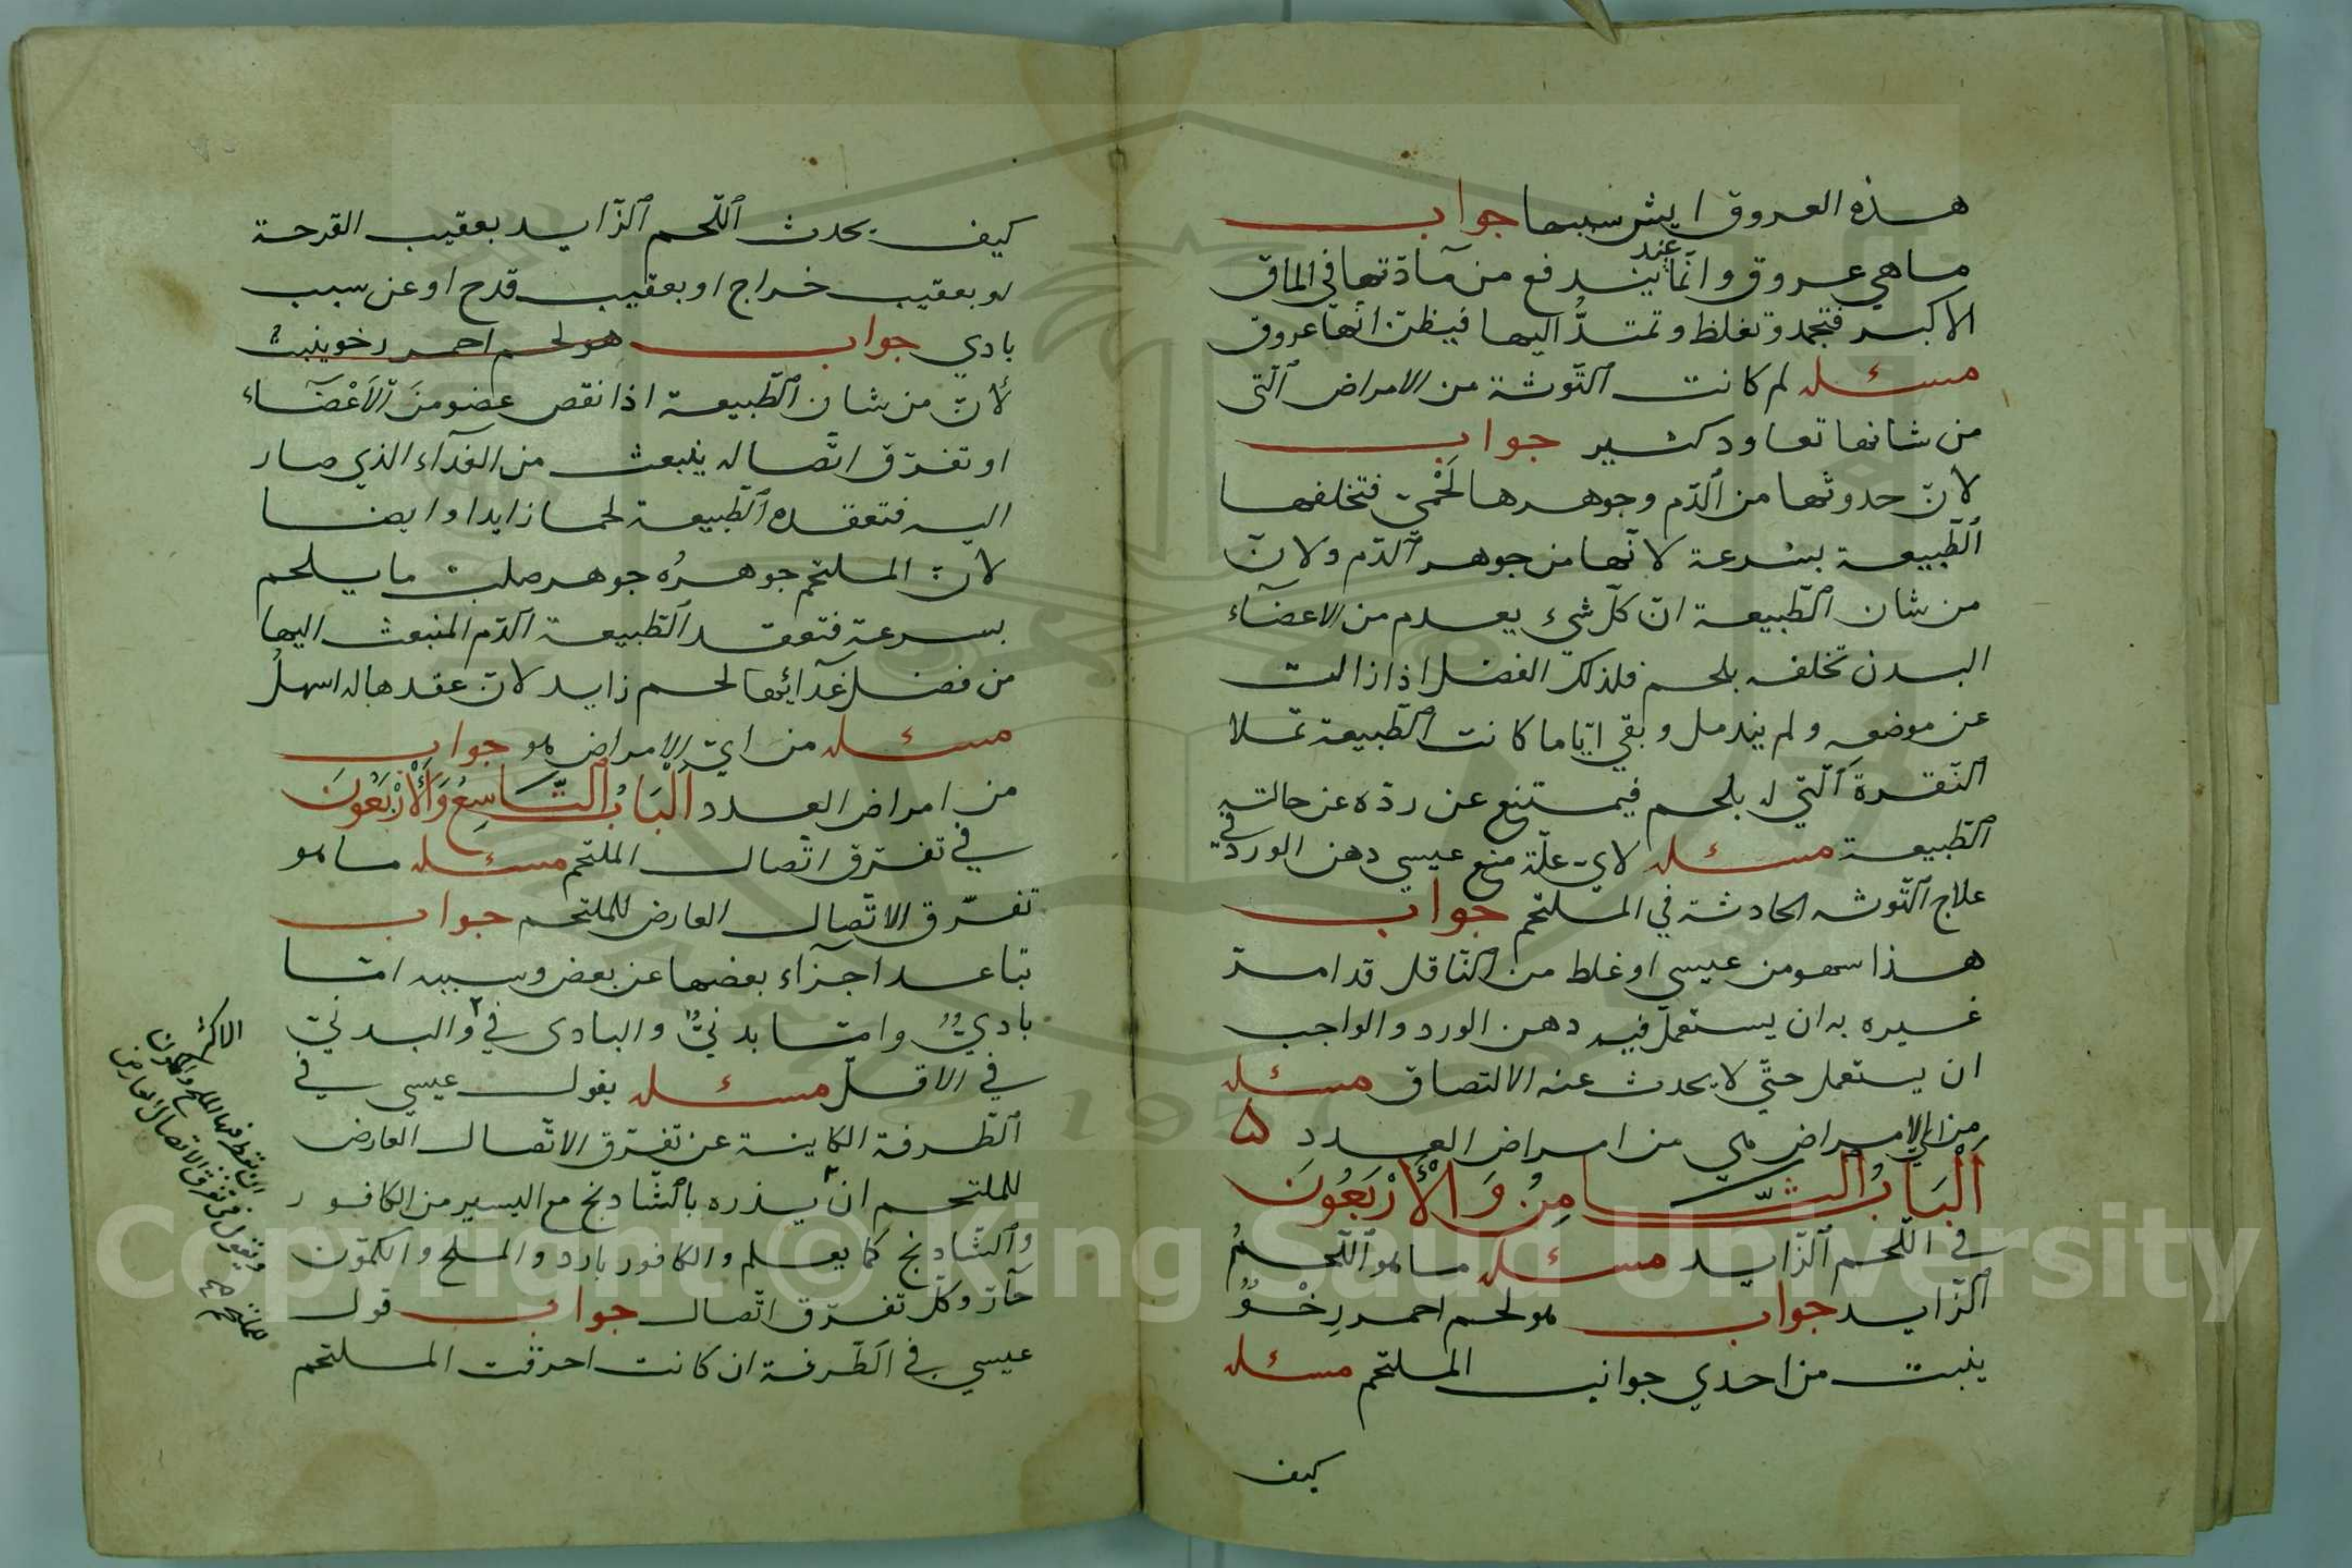 هذه العروق ايش سببها جواب
ما هي عروق وانما يندفع عند من مآدتها في الماق
الاكبر فتجمد وتغلظ وتمتدُّ اليها فيظن انها عروق
مسئله لم كانت التّوثة من الامراض الّتى
من شانها تعاود كثير جواب
لانّ حدوثها من الدّم وجوهرها لَحْميّ فتخلفها
الطّبيعة بسرعة لانّها من جوهر الدّم ولانّ
من شان الطّبيعة انّ كلّ شيء يعدم من الاعضآء
البدن تخلفه بلحم فلذلك الفضل اذا زالت
عن موضعه ولم يندمل وبقي ايّاما كانت الطّبيعة تملا
النّقرة الّتي له بلحم فيمتنع عن ردّه عن حالته
الطّبيعة مسئله لايّ علّة منع عيسي دهن الورد في
علاج التّوثه الحادثة في الملتحم جواب
هذا سهو من عيسي او غلط من النّاقل قد امر
غيره به ان يستعمل فيه دهن الورد والواجب
ان يستعمل حتّي لا يحدث عنه الالتصاق مسئله
من اي الامراض هي من امراض العدد
اَلْبَابُ الثَّامِنُ وَالْأَرْبَعُونَ
في اللّحم الزّايد مسئله ما هو اللّحمُ
الزّايد جواب هو لحم احمر رِخْوٌ
ينبت من احدي جوانب الملتحم مسئله
كيف
كيف يحدث اللّحم الزّايد بعقيب القرحة
او بعقيب خراج او بعقيب قدح او عن سبب
بادي جواب هو لحم احمر رخو ينبت
لأنّ من شان الطّبيعة اذا نقص عضو منَ الَاعْضآء
او تفرّق اتّصاله ينبعث من الغدآء الذي صار
اليه فتعقده الطّبيعة لحما زايدا وايضا
لانّ الملتحم جوهرُه جوهر صلب ما يلحم
بسرعة فتعقد الطّبيعة الدّم المنبعث اليها
من فضل غدآئها لحم زايد لانّ عقدها له اسهلُ
مسئله من ايّ الامراض هو جواب
من امراض العدد اَلْبَابُ التَّاسِعُ وَالْأَرْبَعُونَ
في تفرّق اتّصال الملتحم مسئله ما هو
تفرّق الاتّصال العارض للملتحم جواب
تباعد اجزآء بعضها عن بعض وسببه امّا
باديٌّ وامّا بدنيٌّ والبادى في والبدنيّ
في الاقلّ مسئله يقول عيسي في
الطّرفة الكاينة عن تفرّق الاتّصال العارض
للملتحم ان يذره بالشّادنج مع اليسير من الكافور
والشّادنج كما يعلم والكافور بارد والملح والكمّون
حآرّ وكلّ تفرّق اتّصال جواب قول
عيسي في الطّرفة ان كانت احرقت الملتحم
الاكثر
ان تقطر فيها الملح والكمون
ويقول في تفرق الاتصال العارض
للملتحم